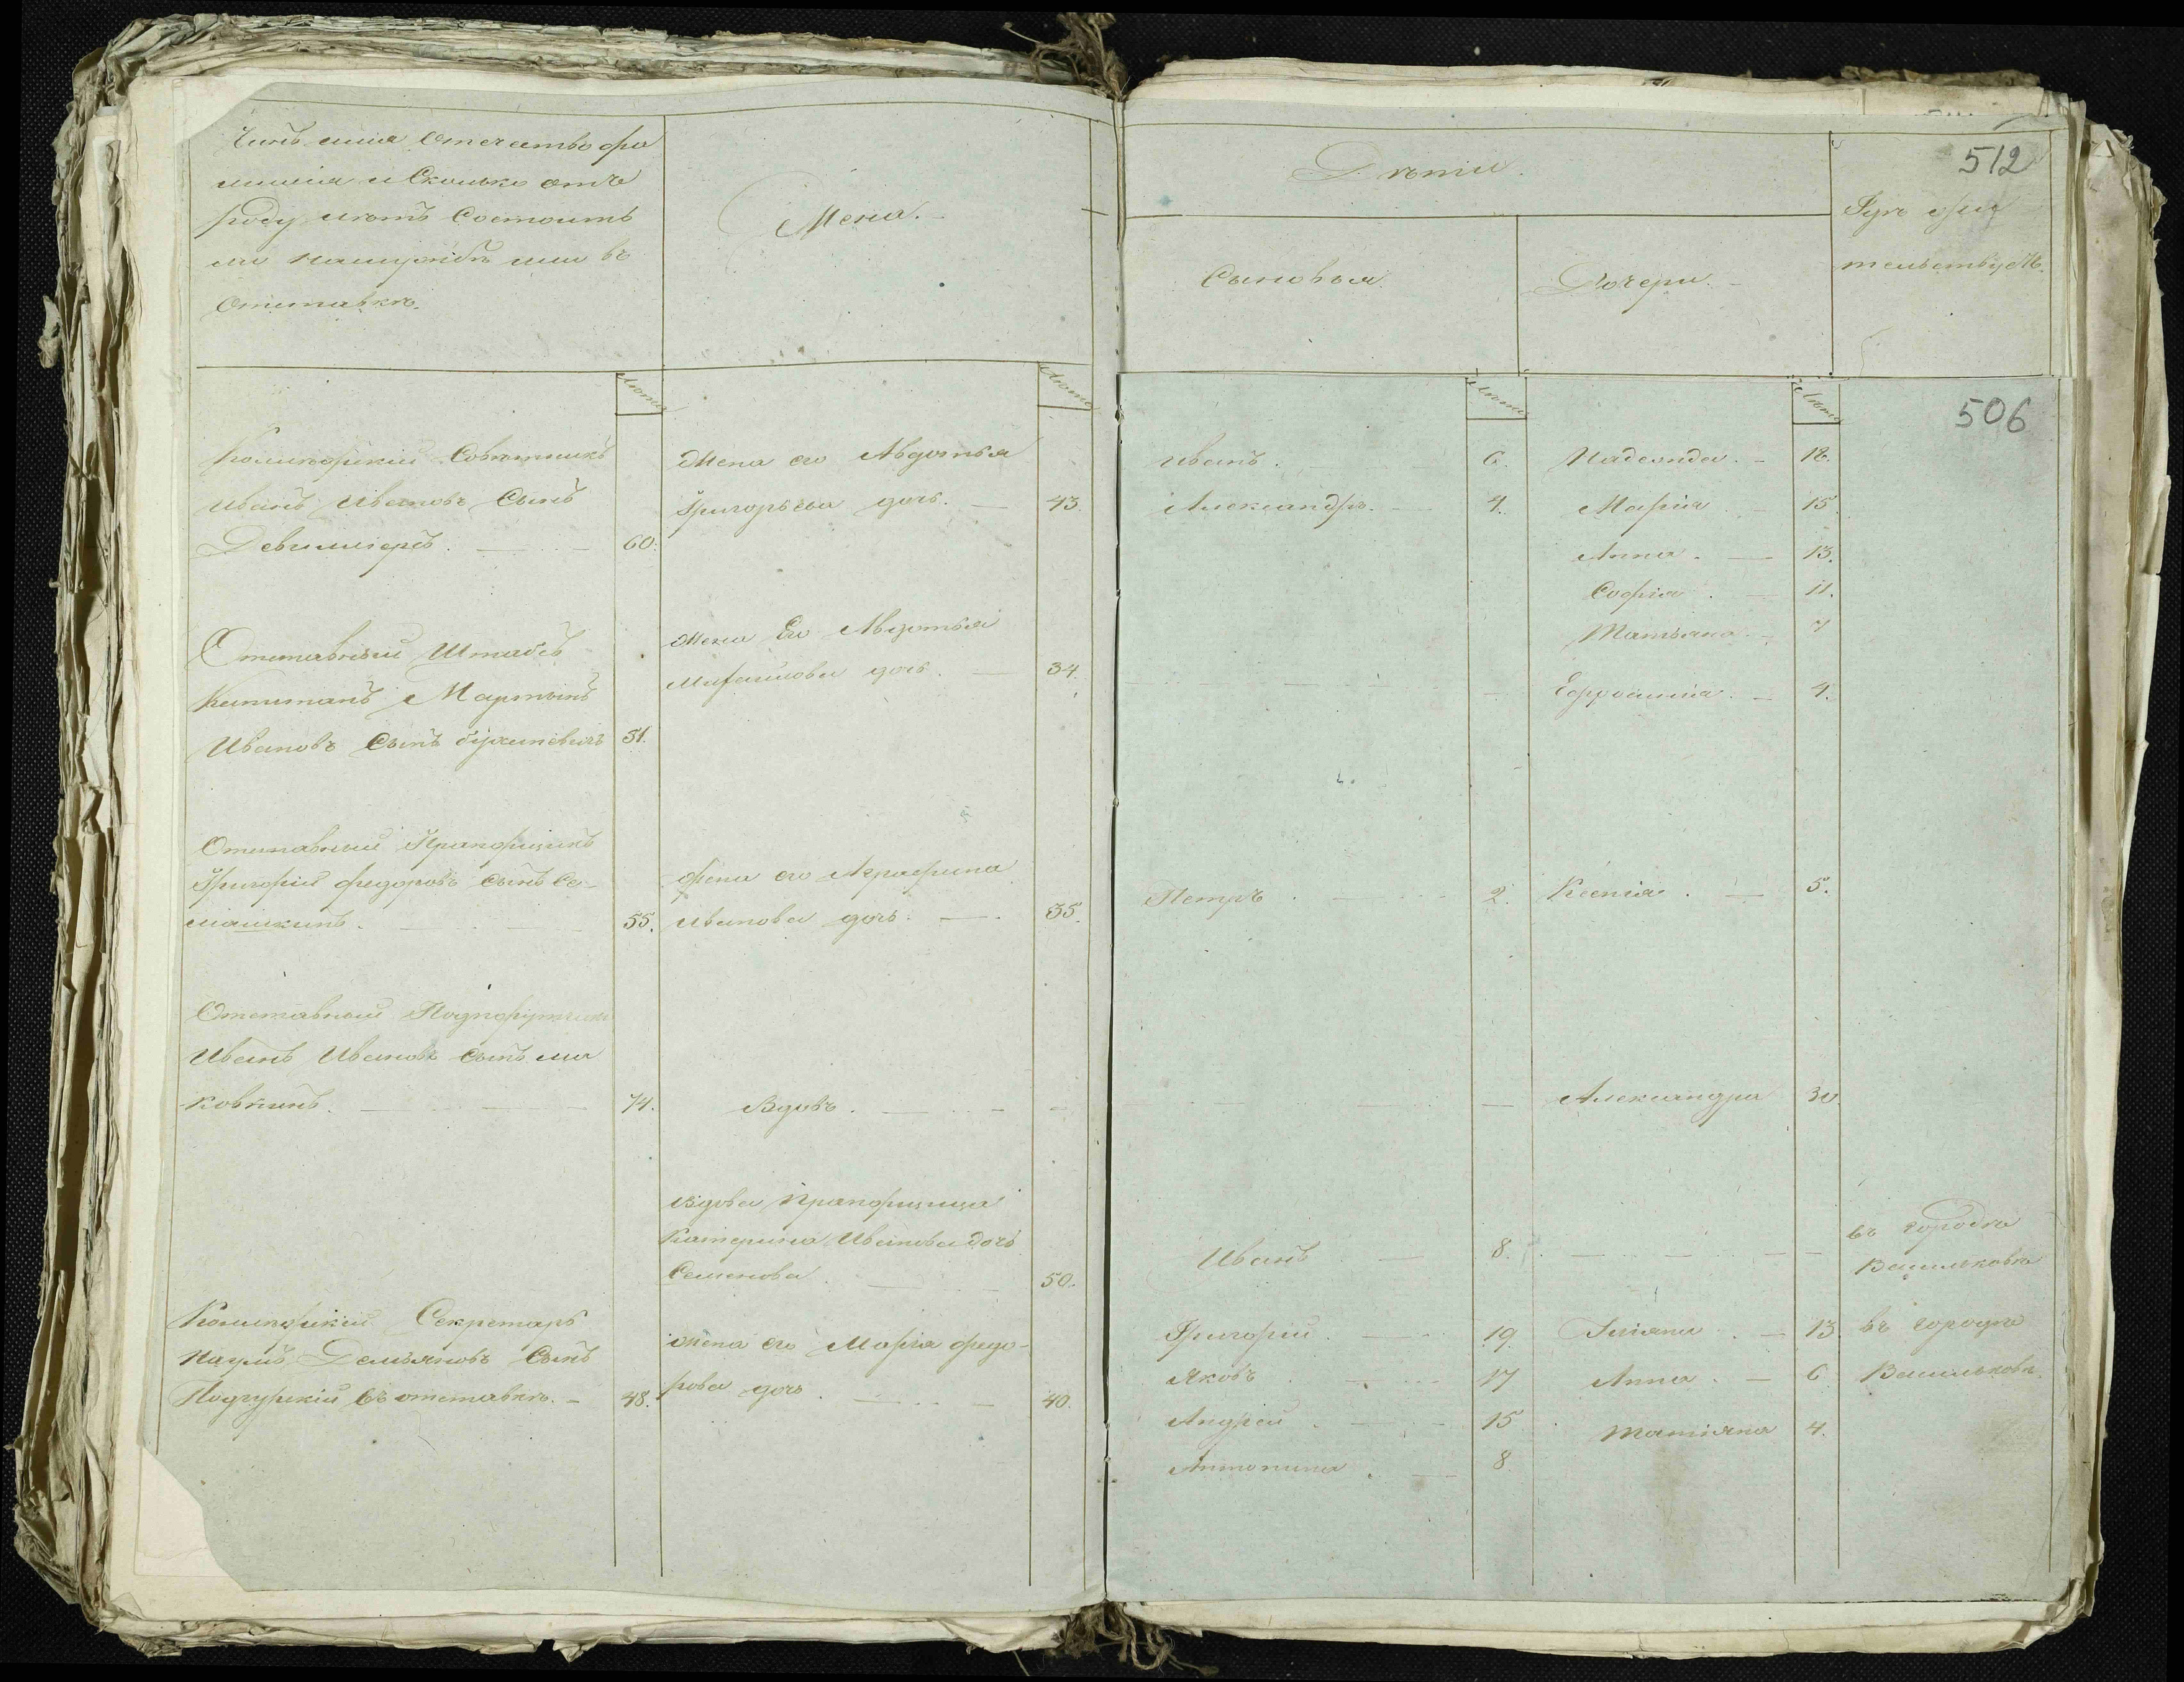 Чинъ имя отечество фа
милия и сколько отъ
роду летъ состоитъ
ли на службѣ или въ
отставкѣ.
Жена.
Дѣти.
Сыновья
Дочери.
512
Гдѣ жи
тельствуетъ.
Лѣта
Лѣта
Лѣта
Лѣта
506
Колежский Советникъ
Иванъ Ивановъ Сынъ
60.
Жена его Авдотья
Григорьева дочь. 43.
Иванъ. 6.
Александръ. 4.
Надежда. 18.
Мария. 15.
Анна. 13.
София. 11.
Татьяна. 7
Отставный Штабсъ
Капитанъ Мартынъ
Ивановъ Сынъ 51.
Жена Его Авдотья
Михайлова дочь. 34.
Ефросиния. 4.
Отставный Прапорщикъ
Григорий Федоровъ Сынъ Се-
машкинъ. 55.
Жена его Аграфина
Иванова дочь. 35.
Петръ. 2.
Ксения. 5.
Отставный Подпорутчикъ
Иванъ Ивановъ Сынъ Ма
ковкинъ. 74.
Вдовъ.
Александра 30.
Вдова Прапорщица
Катерина Иванова дочь
Семенова 50.
Иванъ 8.
въ городѣ
Васильковѣ
Колежский Секретарь
Наумъ Демьяновъ Сынъ
Подгурский въ отставкѣ. 48.
Жена его Мария Федо-
рова дочь. 40.
Григорий. 19.
Яковъ. 17
Андрей. 15
Антонина. 8.
13.
Анна. 6
Татияна 4.
въ городѣ
Васильковѣ.